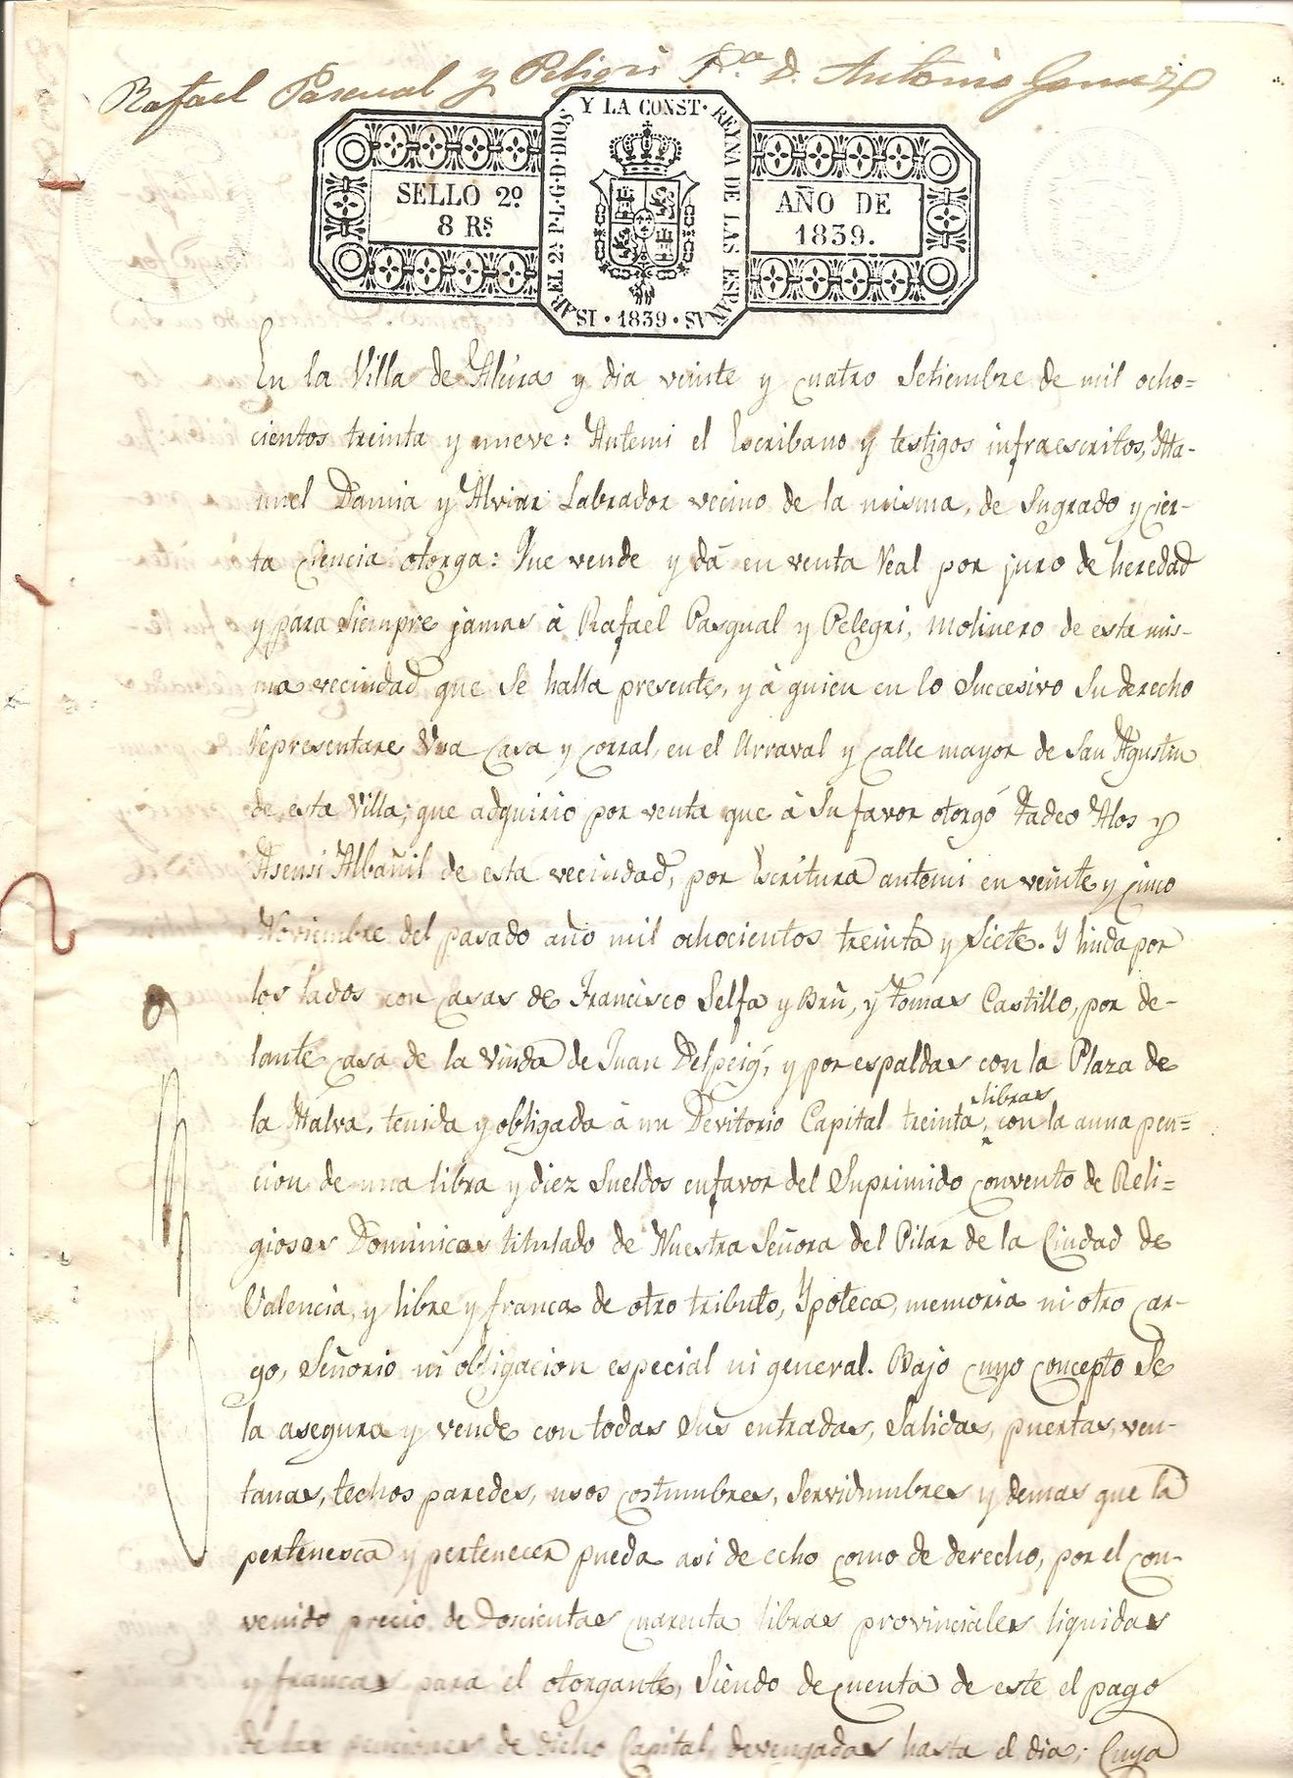 Rafael Pascual y Peligri Pª D. Antonio Gomez
Y LA CONST. REYNA DE LAS ESPAÑAS
ISABEL 2ª P.L.G.D.DIOS
SELLO 2º
8 Rs
AÑO DE
1839.
1839
En la Villa de y dia veinte y cuatro Setiembre de mil ocho=
cientos treinta y nueve: Antemi el Escribano y testigos infraescritos, Ma-
nuel Damia y Alviar Labrador vecino de la misma, de Sugrado y cier-
ta Ciencia otorga: Que vende y dá en venta Real por juro de heredad
y para Siempre jamas à Rafael Pasqual y Pelegri, Molinero de esta mis-
ma vecindad que Se halla presente, y à quien en lo Succesivo Su derecho
representare Una Casa y Corral, en el Arraval y Calle mayor de San Agustin
de esta Villa; que adquirio por venta que à Su favor otorgó Tadeo Alos y
Asensi Albañil de esta vecindad, por Escritura antemi en veinte y Cinco
Noviembre del pasado año mil ochocientos treinta y Siete. Y linda por
los lados con Casas de Francisco Selfa y Brú, y Tomas Castillo, por de-
lante casa de la Viuda de Juan Delpeig, y por espaldas con la Plaza de
la Malva, tenida y obligada à un Devitorio Capital treinta libras, con la annua pen=
cion de una libra y diez Sueldos en favor del Suprimido Convento de Reli=
giosas Dominicas titulado de Nuestra Señora del Pilar de la Ciudad de
Valencia, y libre y franca de otro tributo, Ypoteca, memoria ni otro Car-
go, Señorio ni obligacion especial ni general. Bajo cuyo concepto Se
la asegura y vende con todas Sus entradas, Salidas, puertas, ven-
tanas, techos paredes, usos costumbres, Servidumbres y demas que la
pertenesca y pertenecer pueda asi de echo como de derecho, por el con-
venido precio de Doscientas cuarenta libras provinciales liquidas
y francas para el otorgante, Siendo de cuenta de este el pago
de las penciones de dicho Capital, devengadas hasta el dia; Cuya